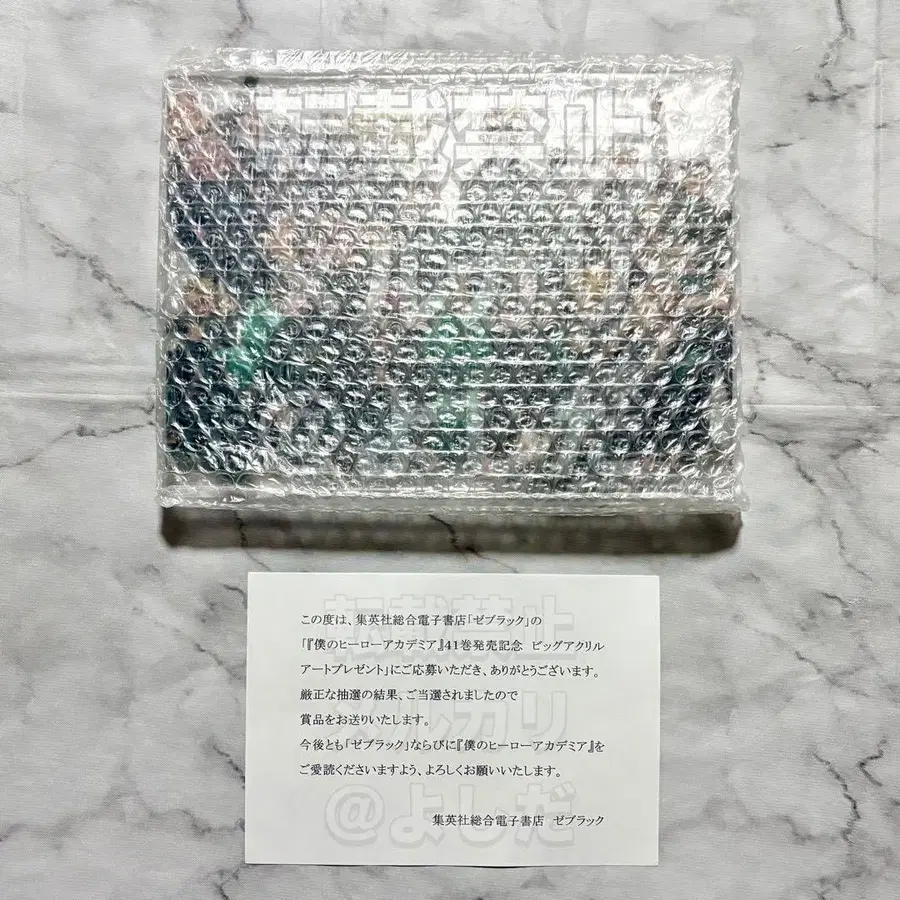 転載禁止
この度は、集英社総合電子書店「ゼブラック」の
「『僕のヒーローアカデミア』41巻発売記念 ビッグアクリル
アートプレゼント」にご応募いただき、ありがとうございます。
厳正な抽選の結果、ご当選されましたので
賞品をお送りいたします。
今後とも「ゼブラック」ならびに『僕のヒーローアカデミア』を
ご愛読くださいますよう、よろしくお願いいたします。
集英社総合電子書店 ゼブラック
転載禁止
メルカリ
@よしだ